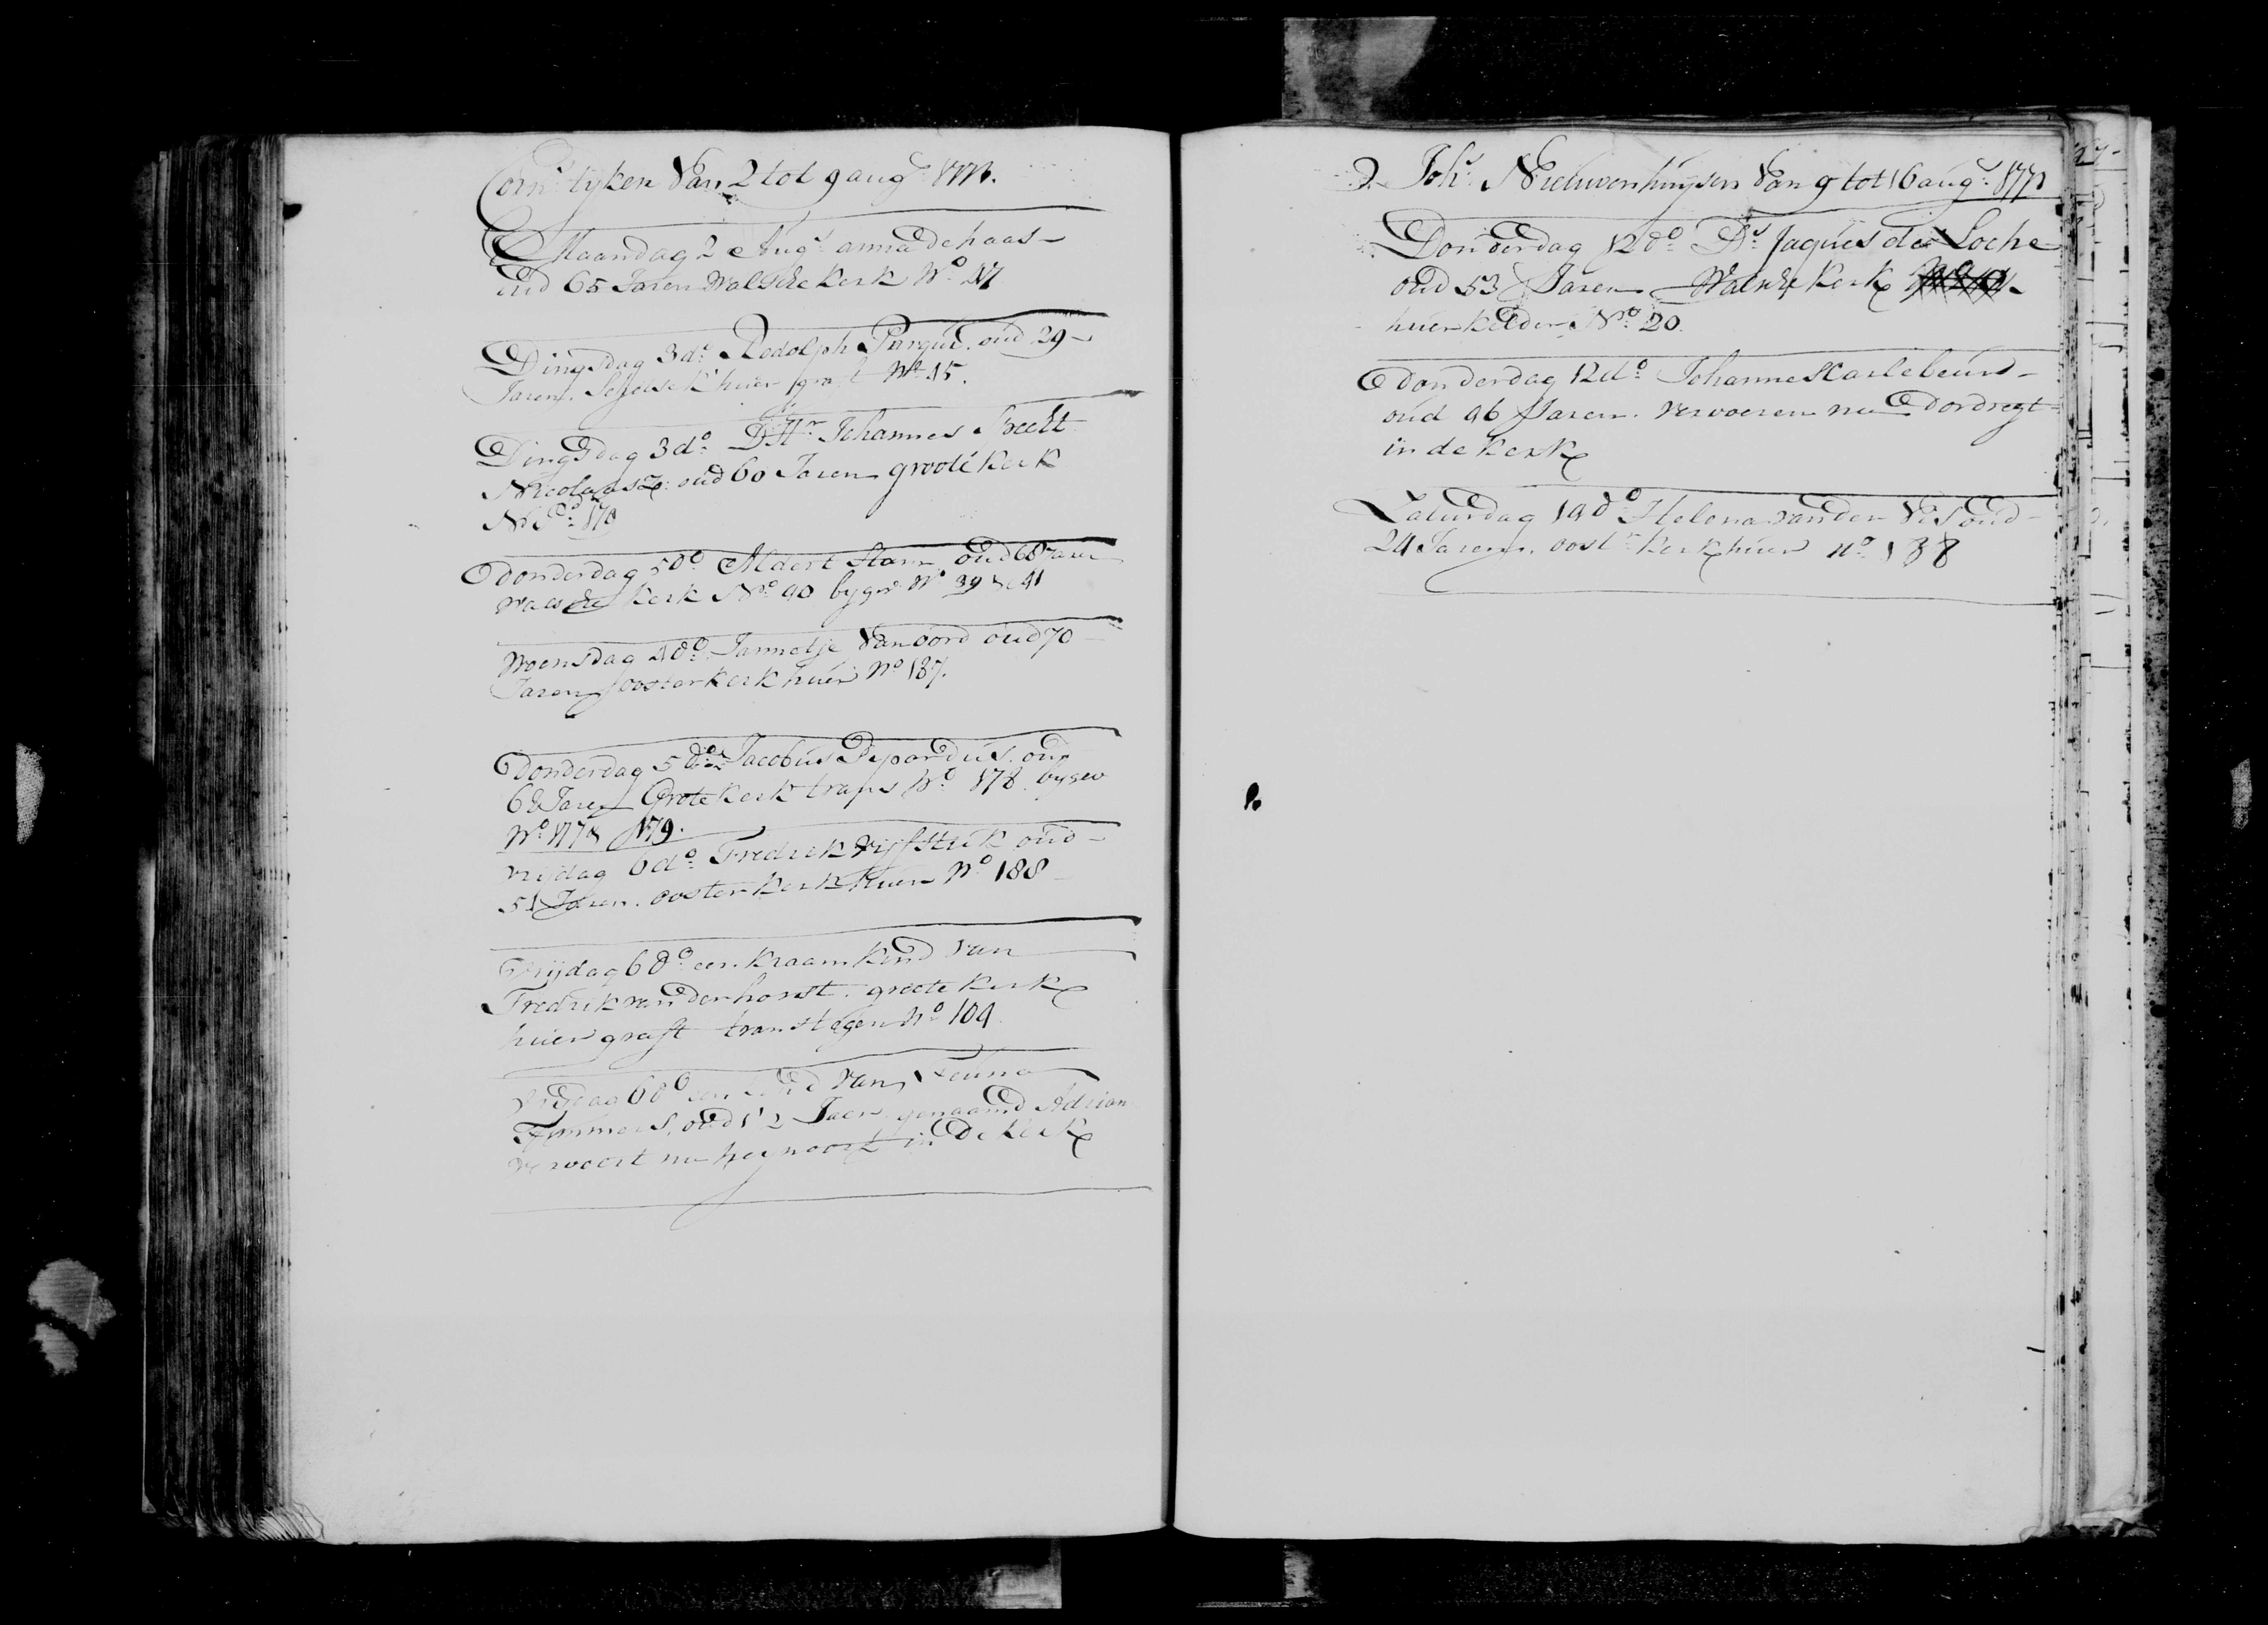 Corns tyken Van 2 tot 9 augs 1773.
Maandag 2 Augs anna de haas
oud 65 Jaren Walsche Kerk No 47
Dingsdag 3do Rodolph oud 29
Jaren huer graft No 15.
Dingsdag 3do D Hr Johannes Specht
Nicolaasz: oud 60 Jaren groote Kerk
No 170
donderdag 5do Aldert Stam oud 68 Jaren
Walsche Kerk No 40 by gev No 39 & 41
Woensdag 4do Jannetje Van oord oud 70
Jaren ooster kerk huer No 187.
donderdag 5do Jacobus oud
Jaren Grote Kerk trans No 178. by gev
No 177 & 179.
vrijdag 6do Fredrik oud
51 Jaren. ooster kerk huer No 188
Vrijdag 6do een kraam kind van
Fredrik van der horst. groote kerk
huer graft trans tegen No 109
Vrijdag 6do een kind van
Timmers, oud 1 1/2 Jaer genaamd Adrian
vervoert na in de kerk
D. Johs Nieuwenhuijsen Van 9 tot 16 augs 1773
Donderdag 12do Ds Jaques de Loche
oud 53 Jaren Walsche Kerk
huer kelder No 20.
donderdag 12do Johannes
oud 46 Jaren. vervoeren na dordregt
in de kerk
Zaturdag 14do Helena van der Ves oud
24 Jaren. oostr kerk huer No 188